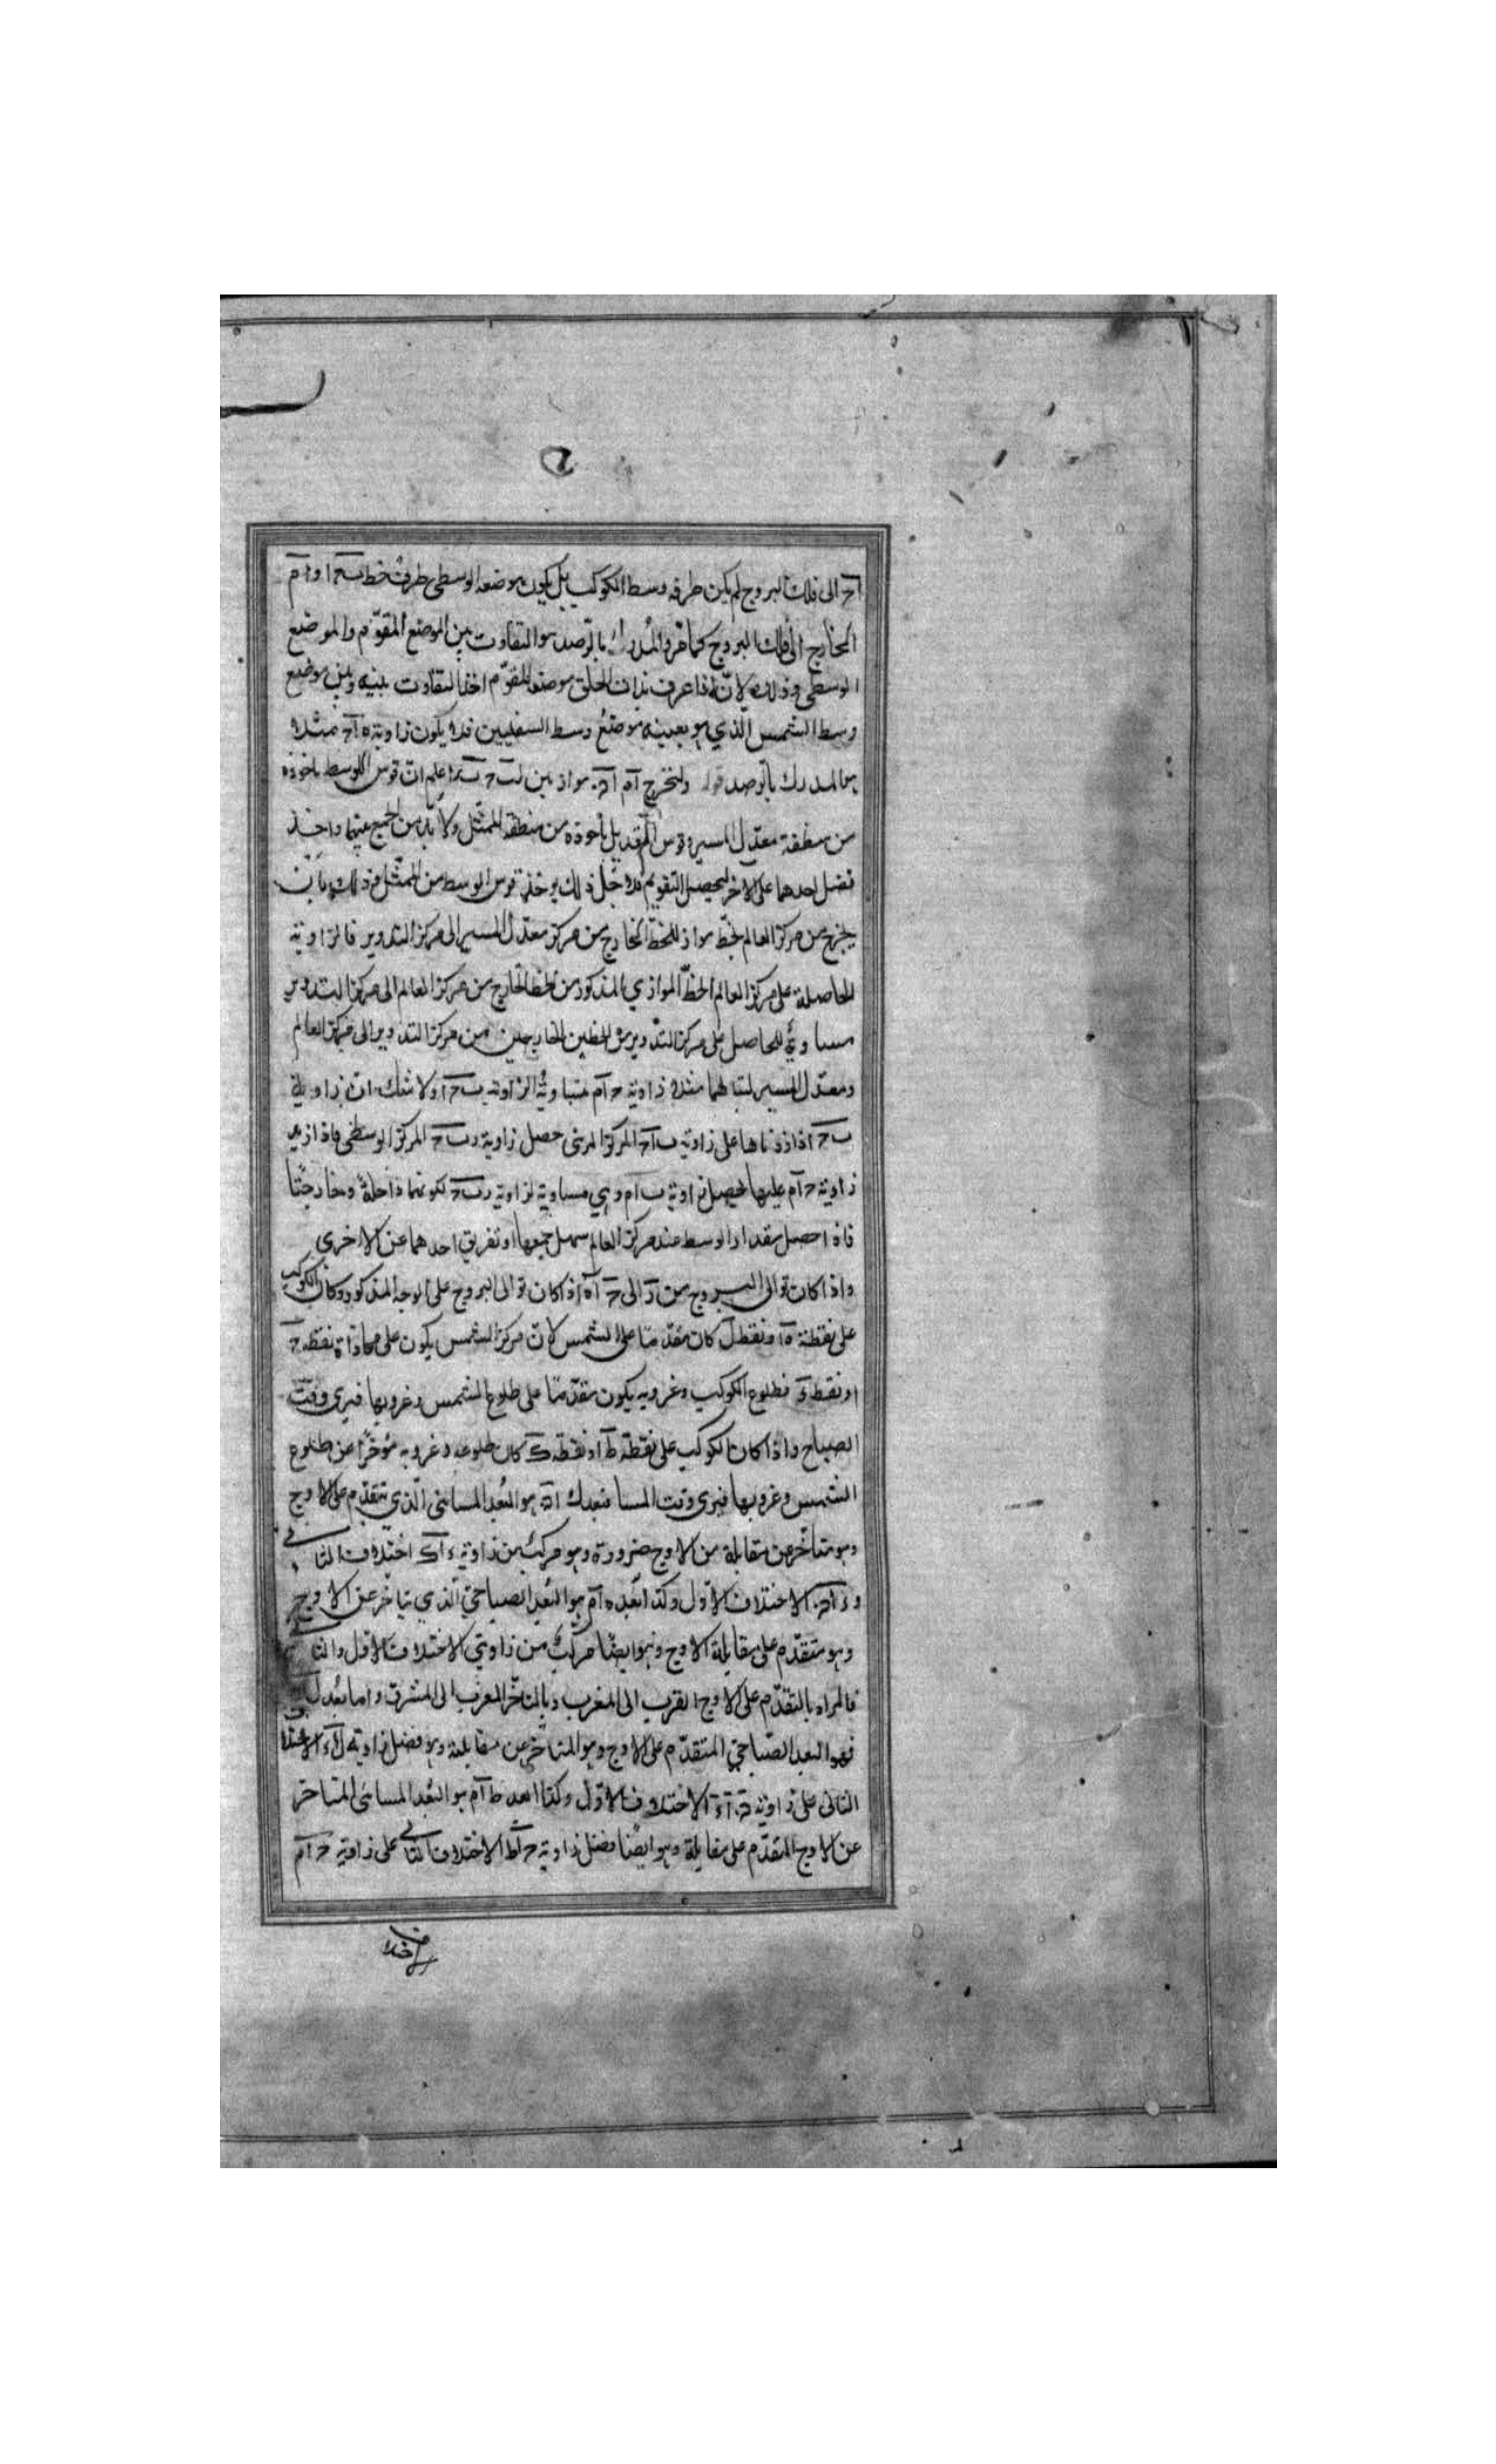 آح الى فلك البروج لم يكن طرفه وسط الكوكب بل يكون موضعه الوسطى طرف خط بح او ام
المخارج الى فلك البروج كما مر والمدرك بالرصد هو التفاوت بين الموضع المقوم والموضع
الوسطى وذلك لانه اذا عرف بذات الحلق موضعه المقوم اخذ التفاوت بينه وبين موضع
وسط الشمس الذي هو بعينه موضع وسط السفليين فلا يكون زاوية ه آح مثلا
هو المدرك بالرصد قوله ولنخرج آم موازيين اعلم ان قوس الوسط ماخوذه
من منطقة معدل المسير وقوس التعديل ماخوذه من منطقة الممثل ولا بد من الجمع بينهما واخذ
فضل احدهما على الآخر ليحصل التقويم فلاجل ذلك يوخذ قوس الوسط من الممثل وذلك بان
يخرج من مركز العالم خط مواز للخط الخارج من مركز معدل المسير الى مركز التدوير فالزاوية
الحاصلة على مركز العالم الخط الموازي المذكور من الخط الخارج من مركز العالم الى مركز التدوير
مساوية للحاصل على مركز التدوير من الخطين الخارجين من مركز التدوير الى مركز العالم
ومعدل المسير لتبادلهما مثلا زاوية ح آم متساوية لزاوية ب ح آ ولا شك ان زاوية
ب ح آ اذا زدناها على زاوية ب آح المركز المرئى حصل زاوية رب ح المركز الوسطى فاذا زيد
زاوية ح آم عليها ليحصل زاوية ب آم وهي مساوية لزاوية رب ح لكونهما داخلة وخارجتا
فاذا حصل مقدار الوسط عند مركز العالم سهل جمعها او تفريق احدهما عن الاخرى
واذا كان توالى البروج من ر الى ح آه اذا كان توالى البروج على الوجه المذكور وكان الكوكب
على نقطة ه او نقطة ل كان مقدما على الشمس لان مركز الشمس يكون على محاذاة نقطة ح
او نقطة ء فطلوع الكوكب وغروبه يكون متقدما على طلوع الشمس وغروبها فيرى وقت
الصباح واذا كان الكوكب على نقطة ط او نقطة ك كان طلوعه وغروبه مؤخرا عن طلوع
الشمس وغروبها فيرى وقت المسا فبعد ك آ هو البعد المسائى الذي يتقدم على الاوج
وهو متاخر عن مقابلة من الاوج ضرورة وهو مركب من زاوية ء آك اختلاف الثانى
الاختلاف الاول وكذا بعد ه آم هو البعد الصباحي الذي يتاخر عن الاوج
وهو متقدم على مقابلة الاوج وهو ايضا مركب من زاويتي الاختلاف الاول والثانى
فالمراد بالتقدم على الاوج القرب الى المغرب وبالتاخر القرب الى المشرق واما بعد ل
فهو البعد الصباحي المتقدم على الاوج وهو المتاخر عن مقابلته وهو فضل زاوية ل آء الاختلاف
الثانى على زاوية الاختلاف الاول وكذا البعد ط آم هو البعد المسائى المتاخر
عن الاوج المتقدم على مقابلة وهو ايضا فضل زاوية ح آط الاختلاف الثانى على زاوية ح آم